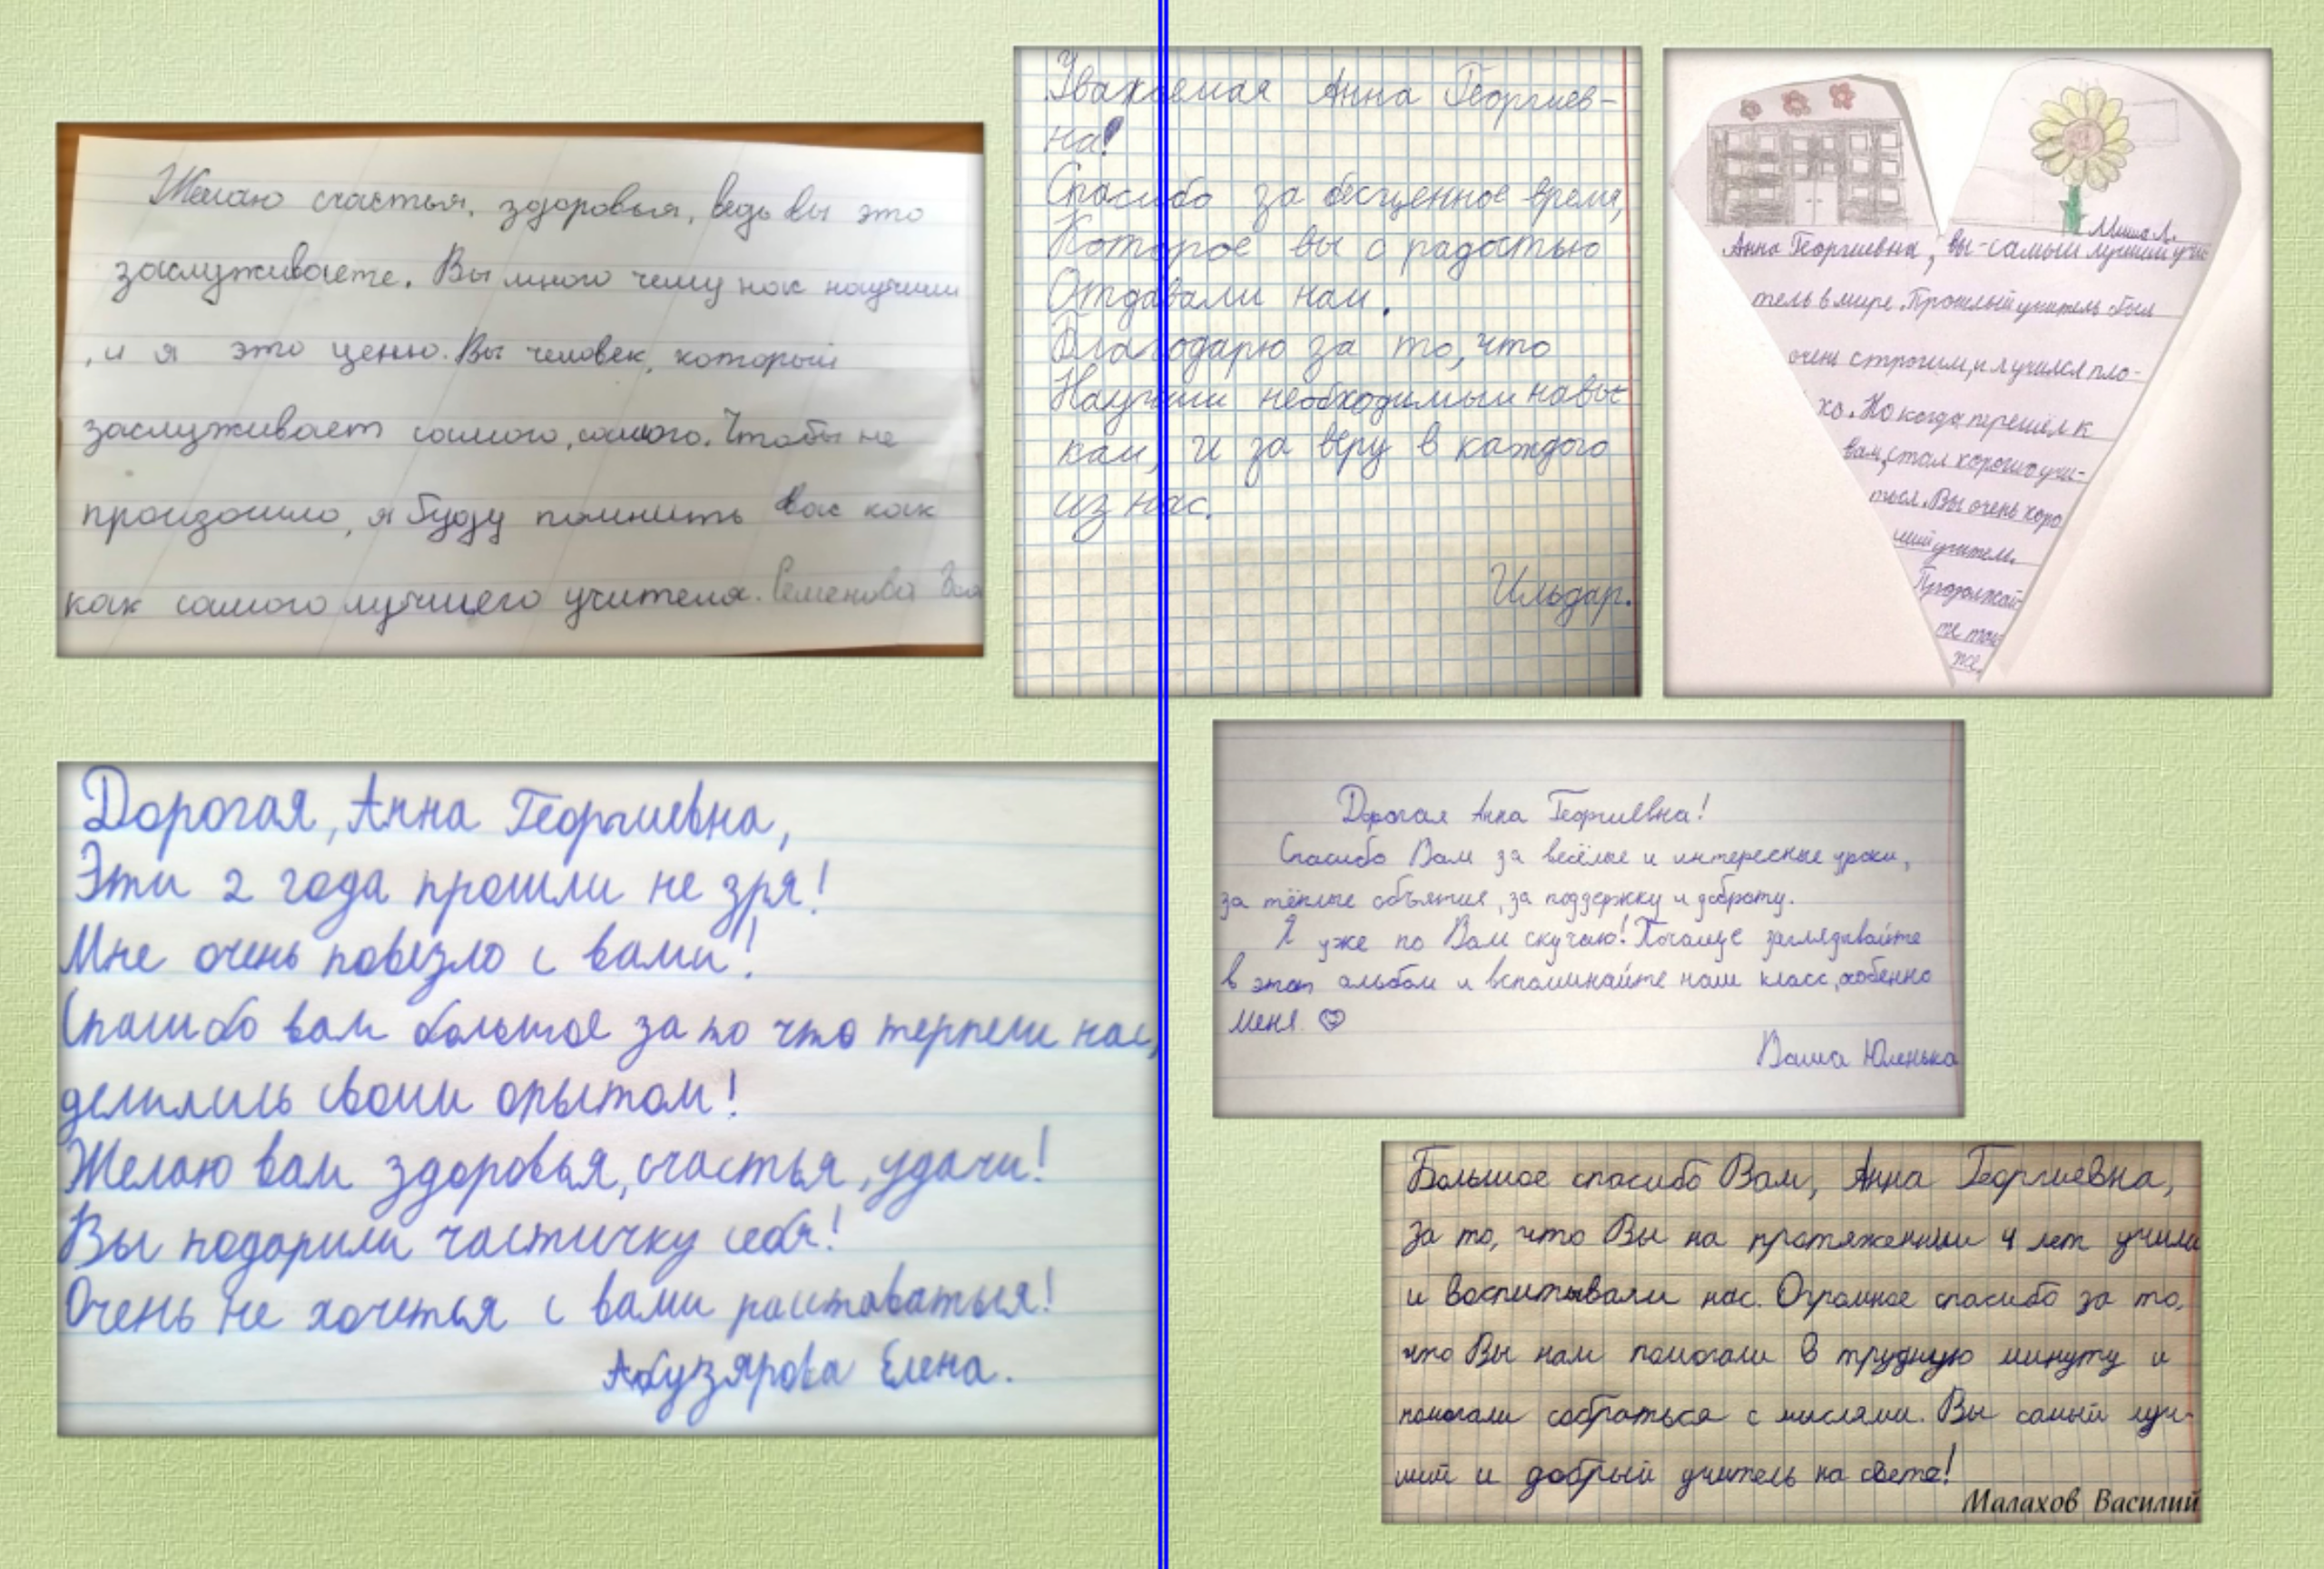 Желаю счастья, здоровья, ведь вы это
заслуживаете. Вы много чему нас научили
, и я это ценю. Вы человек, который
заслуживает самого, самого. Чтобы не
произошло, я буду помнить вас как
как самого лучшего учителя. Семенова
Уважаемая Анна Георгиев-
на!
Спасибо за бесценное время,
Которое вы с радостью
Отдавали нам.
Благодарю за то, что
Научили необходимым навы-
кам, и за веру в каждого
из нас.
Ильдар.
Миша Л.
Анна Георгиевна, вы - самый лучший учи-
тель в мире. Прошлый учитель был
очень строгим, и я учился пло-
хо. Но когда перешёл к
вам, стал хорошо учи-
ться. Вы очень хоро
ший учитель.
Продолжай-
те так
же.
Дорогая, Анна Георгиевна,
Эти 2 года прошли не зря!
Мне очень повезло с вами!
Спасибо вам большое за то что терпели нас,
делились своим опытом!
Желаю вам здоровья, счастья, удачи!
Вы подарили частичку себя!
Очень не хочется с вами расставаться!
Абузярова Елена.
Дорогая Анна Георгиевна!
Спасибо Вам за весёлые и интересные уроки,
за тёплые объятия, за поддержку и доброту.
Я уже по Вам скучаю! Почаще заглядывайте
в этот альбом и вспоминайте наш класс, особенно
меня
Ваша Юленька
Большое спасибо Вам, Анна Георгиевна,
за то, что Вы на протяжении 4 лет учили
и воспитывали нас. Огромное спасибо за то,
что Вы нам помогали в трудную минуту и
помогали собраться с мыслями. Вы самый луч-
ший и добрый учитель на свете!
Малахов Василий